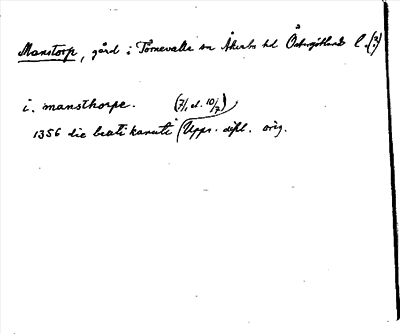 Manstorp, gård i Törnevalla sn Åkerbo hd Östergötland l. (?)
i. mansthorpe. (7/1 el. 10/7)
1356 die beati kanuti (Upps. dipl. orig.